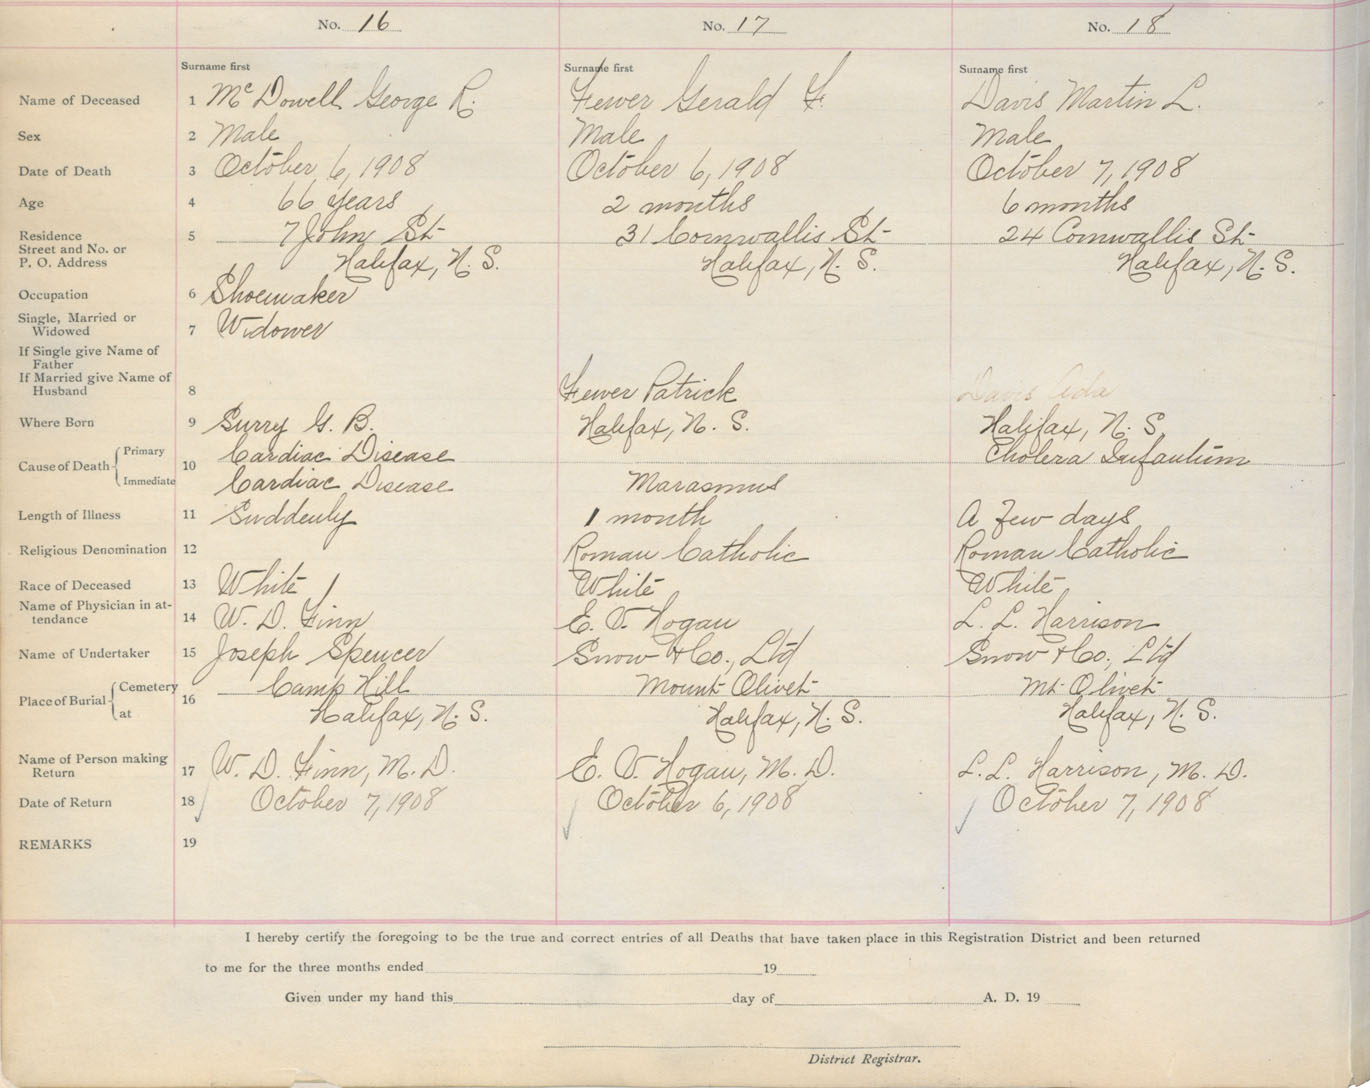 No. 16 No. 17 No. 18
Surname first Surname first Surname first
Name of Deceased 1 McDowell George R. Fewer Gerald F. Davis Martin L.
Sex 2 Male Male Male
Date of Death 3 October 6, 1908 October 6, 1908 October 7, 1908
Age 4 66 years 2 months 6 months
Residence 5 7 John St- 31 Cornwallis St- 24 Cornwallis St-
Street and No. or
P. O. Address Halifax, N. S. Halifax, N. S. Halifax, N. S.
Occupation 6 Shoemaker
Single, Married or
Widowed 7 Widower
If Single give Name of
Father
If Married give Name of
Husband 8 Fewer Patrick Davis Ada
Where Born 9 Surry G. B. Halifax, N. S. Halifax, N. S.
Cause of Death Primary 10 Cardiac Disease Cholera Infantum
Immediate Cardiac Disease Marasmus
Length of Illness 11 Suddenly 1 month A few days
Religious Denomination 12 Roman Catholic Roman Catholic
Race of Deceased 13 White White White
Name of Physician in at-
tendance 14 W. D. Finn E. V. Hogan L. L. Harrison
Name of Undertaker 15 Joseph Spencer Snow & Co., Ltd Snow & Co., Ltd
Place of Burial Cemetery 16 Camp Hill Mount Olivet Mt Olivet
at Halifax, N. S. Halifax, N. S. Halifax, N. S.
Name of Person making
Return 17 W. D. Finn, M. D. E. V. Hogan, M. D. L. L. Harrison, M. D.
Date of Return 18 October 7, 1908 October 6, 1908 October 7, 1908
REMARKS 19
I hereby certify the foregoing to be the true and correct entries of all Deaths that have taken place in this Registration District and been returned
to me for the three months ended 19
Given under my hand this day of A. D. 19
District Registrar.